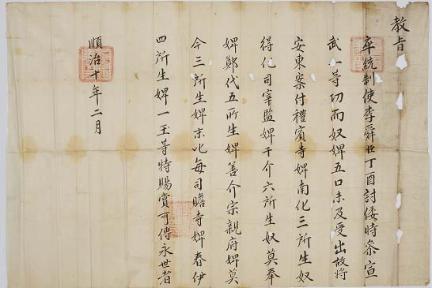 教旨
卒統制使李舜臣丁酉討倭時宣
武一等功而奴婢五口未及受出故將
安東案付禮賓寺婢南化三所生奴
得化司宰監婢千介六所生奴莫奉
婢鄭代五所生婢善介宗親府婢莫
今三所生婢末叱每司贍寺婢春伊
四所生婢一玉等特賜賞可傳永世者
順治十年二月